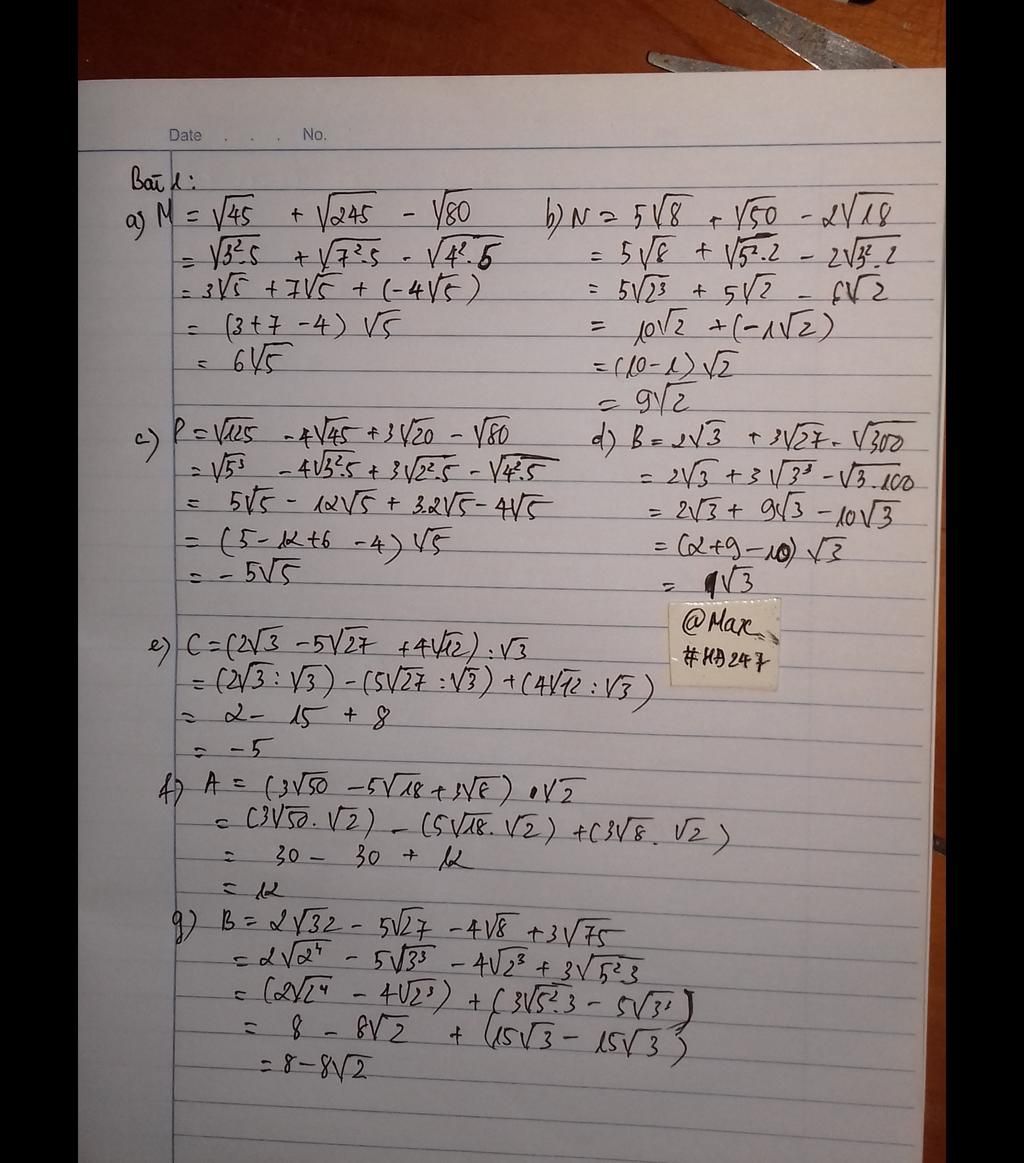 Date . . . No.
Bài 1:
a) M = √45 + √245 - √80
= √3².5 + √7².5 - √4².5
= 3√5 + 7√5 + (-4√5)
= (3+7-4) √5
= 6√5
b) N = 5√8 + √50 - 2√18
= 5√8 + √5².2 - 2√3².2
= 5√2³ + 5√2 - 6√2
= 10√2 + (-1√2)
= (10-1) √2
= 9√2
c) P = √125 - 4√45 + 3√20 - √80
= √5³ - 4√3².5 + 3√2².5 - √4².5
= 5√5 - 12√5 + 3.2√5 - 4√5
= (5-12+6-4) √5
= -5√5
d) B = 2√3 + 3√27 - √300
= 2√3 + 3√3³ - √3.100
= 2√3 + 9√3 - 10√3
= (2+9-10) √3
= 1√3
@Max
#HD247
e) C = (2√3 - 5√27 + 4√12) : √3
= (2√3 : √3) - (5√27 : √3) + (4√12 : √3)
= 2 - 15 + 8
= -5
f) A = (3√50 - 5√18 + 3√8) . √2
= (3√50 . √2) - (5√18 . √2) + (3√8 . √2)
= 30 - 30 + 12
= 12
g) B = 2√32 - 5√27 - 4√8 + 3√75
= 2√2⁴ - 5√3³ - 4√2³ + 3√5²3
= (2√2⁴ - 4√2³) + (3√5².3 - 5√3³)
= 8 - 8√2 + (15√3 - 15√3)
= 8 - 8√2